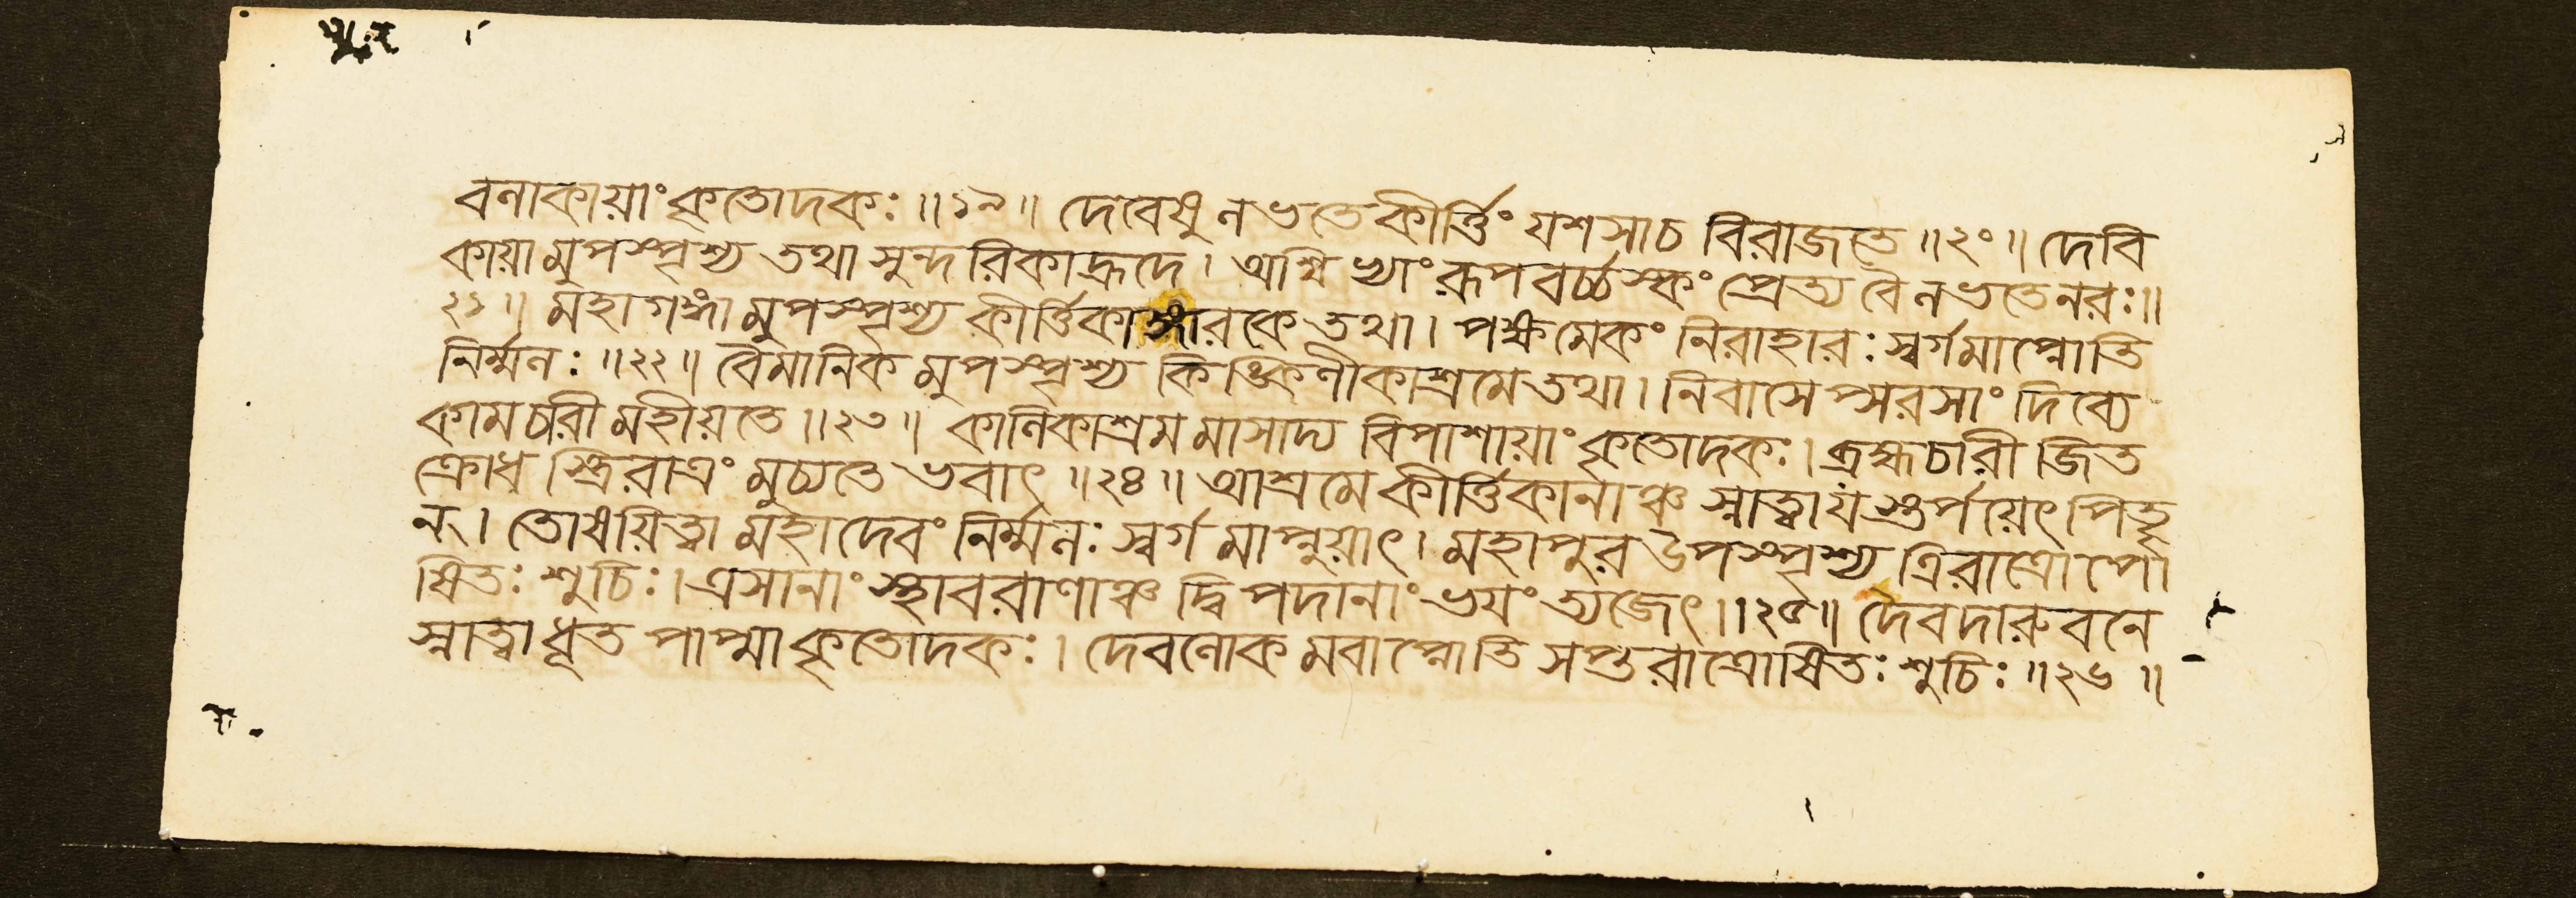 বলাকায়াং কৃতোদকঃ ॥ ১৯ ॥ দেবেষু লভতে কীর্ত্তিং যশসা চ বিরাজতে ॥ ২০ ॥ দেবি
কায়ামুপস্পৃশ্য তথা সুন্দরিকাহ্রদে । অশ্বিন্যাং রূপবর্চ্চস্কং প্রেত্য বৈ লভতে নরঃ ॥
২১ ॥ মহাগঙ্গামুপস্পৃশ্য কীর্ত্তিকাঙ্গারকে তথা । পক্ষমেকং নিরাহারঃ স্বর্গমাপ্নোতি
নির্ম্মলঃ ॥ ২২ ॥ বৈমানিকমুপস্পৃশ্য কিঙ্কিণীকাশ্রমে তথা । নিবাসেপ্সরসাং দিব্যে
কামচারী মহীয়তে ॥ ২৩ ॥ কালিকাশ্রমমাসাদ্য বিপাশায়াং কৃতোদকঃ । ব্রহ্মচারী জিত
ক্রোধ স্ত্রিরাত্রং মুচ্যতে ভবাৎ ॥ ২৪ ॥ আশ্রমে কীর্ত্তিকানাঞ্চ স্নাত্বা যস্তর্পয়েৎ পিতৄ
ন্ । তোষয়িত্বা মহাদেবং নির্ম্মলঃ স্বর্গমাপ্নুয়াৎ । মহাপুর উপস্পৃশ্য ত্রিরাত্রোপো
ষিতঃ শুচিঃ । ত্রসানাং স্থাবরাণাঞ্চ দ্বিপদানাং ভয়ং ত্যজেৎ ॥ ২৫ ॥ দেবদারুবনে
স্নাত্বা ধূতপাপ্মা কৃতোদকঃ । দেবলোকমবাপ্নোতি সপ্তরাত্রোষিতঃ শুচিঃ ॥ ২৬ ॥